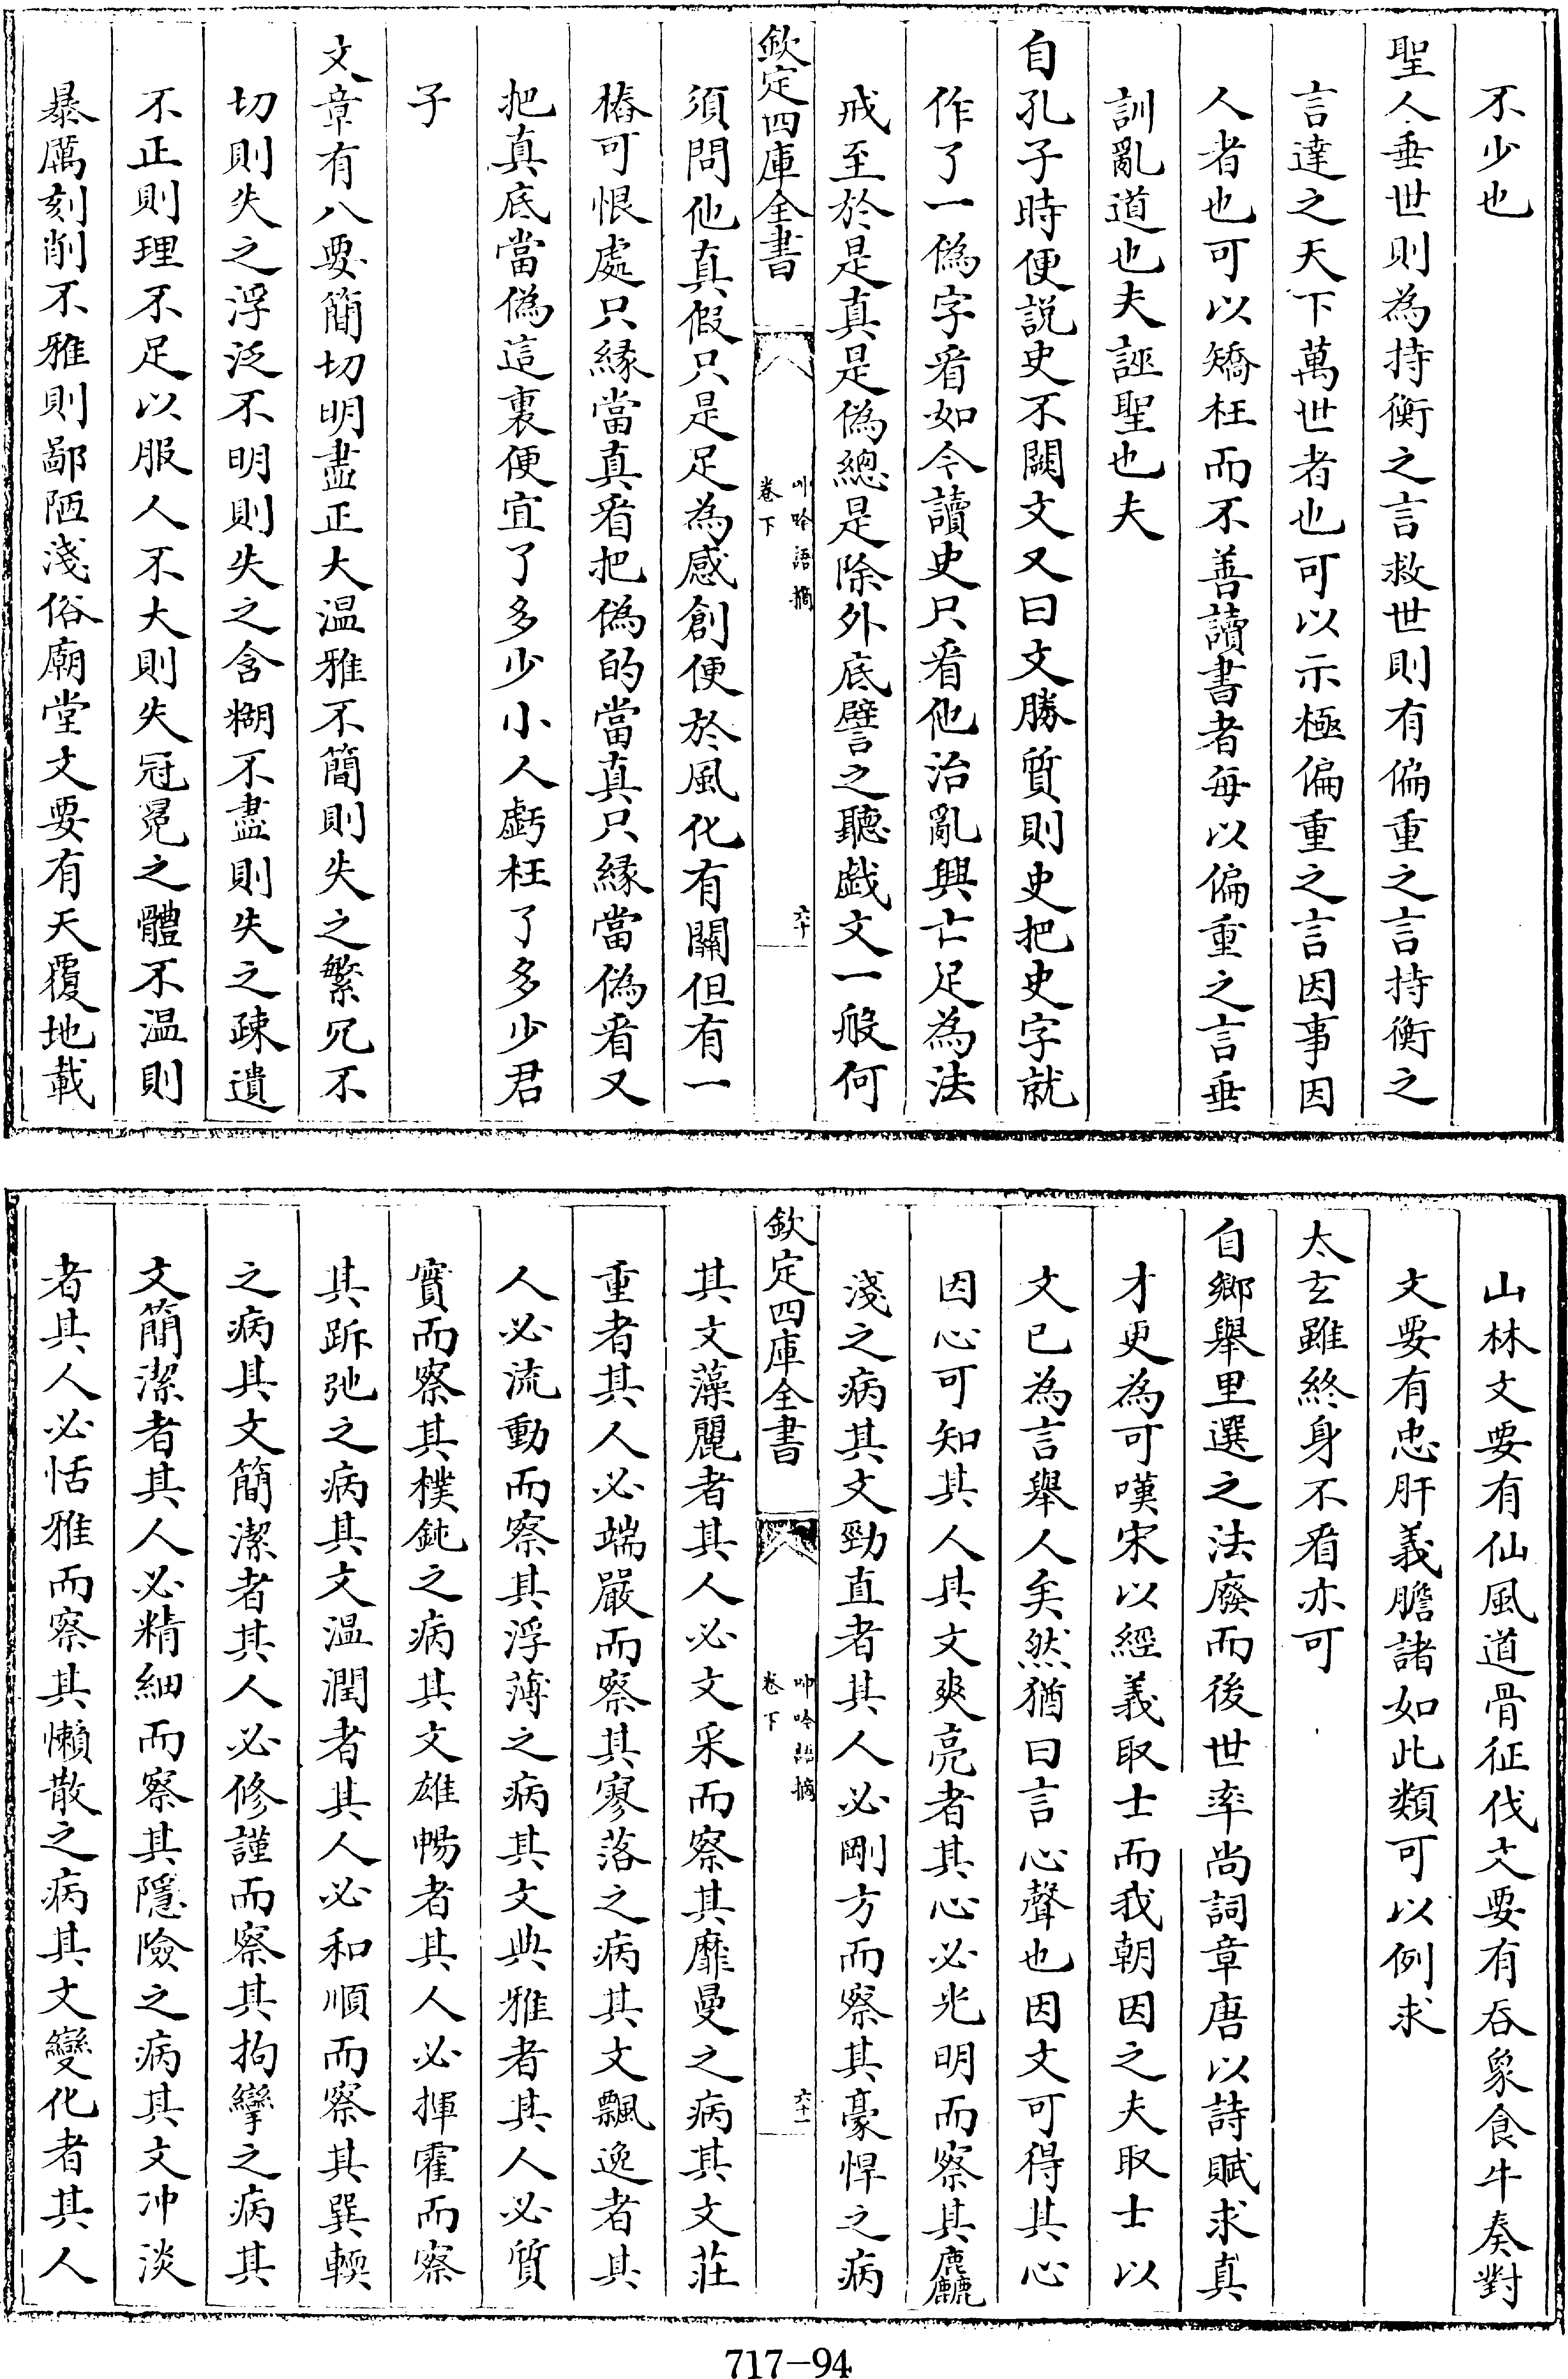 不少也
聖人垂世則為持衡之言救世則有偏重之言持衡之
言達之天下萬世者也可以示極偏重之言因事因
人者也可以矯枉而不善讀書者每以偏重之言垂
訓亂道也夫誣聖也夫
自孔子時便説史不闕文又曰文勝質則史把史字就
作了一偽字看如今讀史只看他治亂興亡足為法
戒至於是真是偽總是除外底譬之聽戯文一般何
欽定四庫全書
呻吟語摘
卷下
六十
須問他真假只是足為感創便於風化有關但有一
樁可恨處只縁當真看把偽的當真只縁當偽看又
把真底當偽這裏便宜了多少小人虧枉了多少君
子
文章有八要簡切明盡正大温雅不簡則失之繁冗不
切則失之浮泛不明則失之含糊不盡則失之疎遺
不正則理不足以服人不大則失冠冕之體不温則
暴厲刻削不雅則鄙陋淺俗廟堂文要有天覆地載
山林文要有仙風道骨征伐文要有吞象食牛奏對
文要有忠肝義膽諸如此類可以例求
太𤣥雖終身不看亦可
自鄉舉里選之法廢而後世率尚詞章唐以詩賦求真
才更為可嘆宋以經義取士而我朝因之夫取士以
文已為言舉人矣然猶曰言心聲也因文可得其心
因心可知其人其文爽亮者其心必光明而察其麤
淺之病其文勁直者其人必剛方而察其豪悍之病
欽定四庫全書
呻吟語摘
卷下
六十一
其文藻麗者其人必文采而察其靡曼之病其文莊
重者其人必端嚴而察其寥落之病其文飄逸者其
人必流動而察其浮薄之病其文典雅者其人必質
實而察其樸鈍之病其文雄暢者其人必揮霍而察
其跅弛之病其文温潤者其人必和順而察其巽輭
之病其文簡潔者其人必修謹而察其拘攣之病其
文簡潔者其人必精細而察其隱險之病其文冲淡
者其人必恬雅而察其懶散之病其文變化者其人
717-94